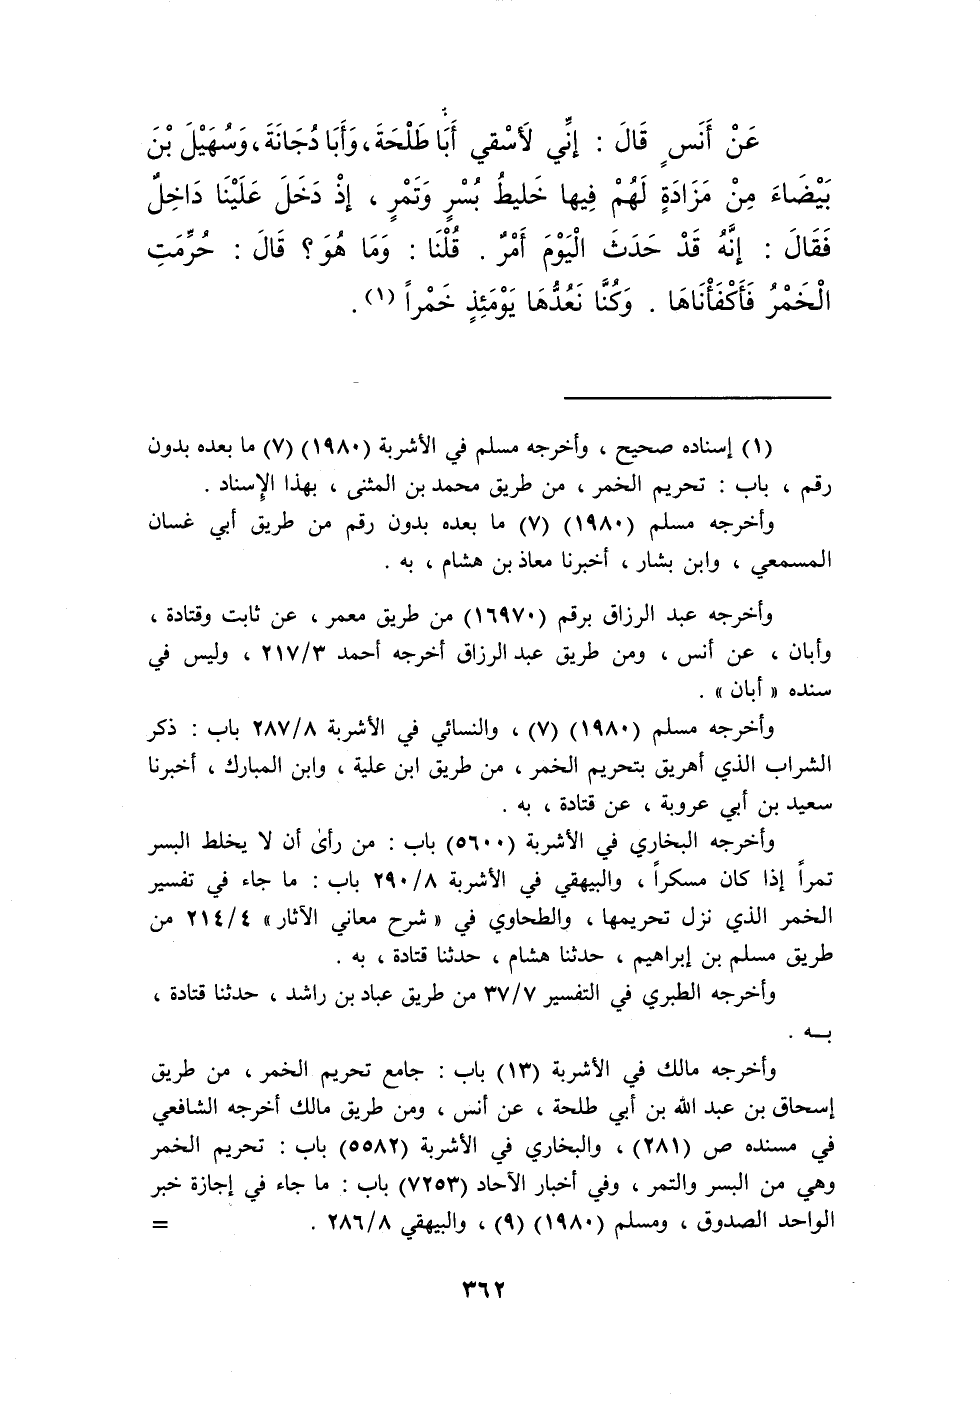 عَنْ أَنَسٍ قَالَ : إِنِّي لَأَسْقِي أَبَا طَلْحَةَ، وَأَبَا دُجَانَةَ، وَسُهَيْلَ بْنَ
بَيْضَاءَ مِنْ مَزَادَةٍ لَهُمْ فِيها خَليطُ بُسْرٍ وَتَمْرٍ ، إِذْ دَخَلَ عَلَيْنَا دَاخِلٌ
فَقَالَ : إِنَّهُ قَدْ حَدَثَ الْيَوْمَ أَمْرٌ . قُلْنَا : وَمَا هُوَ ؟ قَالَ : حُرِّمَتِ
الْخَمْرُ فَأَكْفَأْنَاهَا . وَكُنَّا نَعُدُّهَا يَوْمَئِذٍ خَمْراً (١) .
(١) إسناده صحيح ، وأخرجه مسلم في الأشربة (١٩٨٠) (٧) ما بعده بدون
رقم ، باب : تحريم الخمر ، من طريق محمد بن المثنى ، بهذا الإسناد .
وأخرجه مسلم (١٩٨٠) (٧) ما بعده بدون رقم من طريق أبي غسان
المسمعي ، وابن بشار ، أخبرنا معاذ بن هشام ، به .
وأخرجه عبد الرزاق برقم (١٦٩٧٠) من طريق معمر ، عن ثابت وقتادة ،
وأبان ، عن أنس ، ومن طريق عبد الرزاق أخرجه أحمد ٢١٧/٣ ، وليس في
سنده « أبان » .
وأخرجه مسلم (١٩٨٠) (٧) ، والنسائي في الأشربة ٢٨٧/٨ باب : ذكر
الشراب الذي أهريق بتحريم الخمر ، من طريق ابن علية ، وابن المبارك ، أخبرنا
سعيد بن أبي عروبة ، عن قتادة ، به .
وأخرجه البخاري في الأشربة (٥٦٠٠) باب : من رأىٰ أن لا يخلط البسر
تمراً إذا كان مسكراً ، والبيهقي في الأشربة ٢٩٠/٨ باب : ما جاء في تفسير
الخمر الذي نزل تحريمها ، والطحاوي في « شرح معاني الآثار » ٢١٤/٤ من
طريق مسلم بن إبراهيم ، حدثنا هشام ، حدثنا قتادة ، به .
وأخرجه الطبري في التفسير ٣٧/٧ من طريق عباد بن راشد ، حدثنا قتادة ،
بـه .
وأخرجه مالك في الأشربة (١٣) باب : جامع تحريم الخمر ، من طريق
إسحاق بن عبد الله بن أبي طلحة ، عن أنس ، ومن طريق مالك أخرجه الشافعي
في مسنده ص (٢٨١) ، والبخاري في الأشربة (٥٥٨٢) باب : تحريم الخمر
وهي من البسر والتمر ، وفي أخبار الآحاد (٧٢٥٣) باب : ما جاء في إجازة خبر
الواحد الصدوق ، ومسلم (١٩٨٠) (٩) ، والبيهقي ٢٨٦/٨ . =
٣٦٢